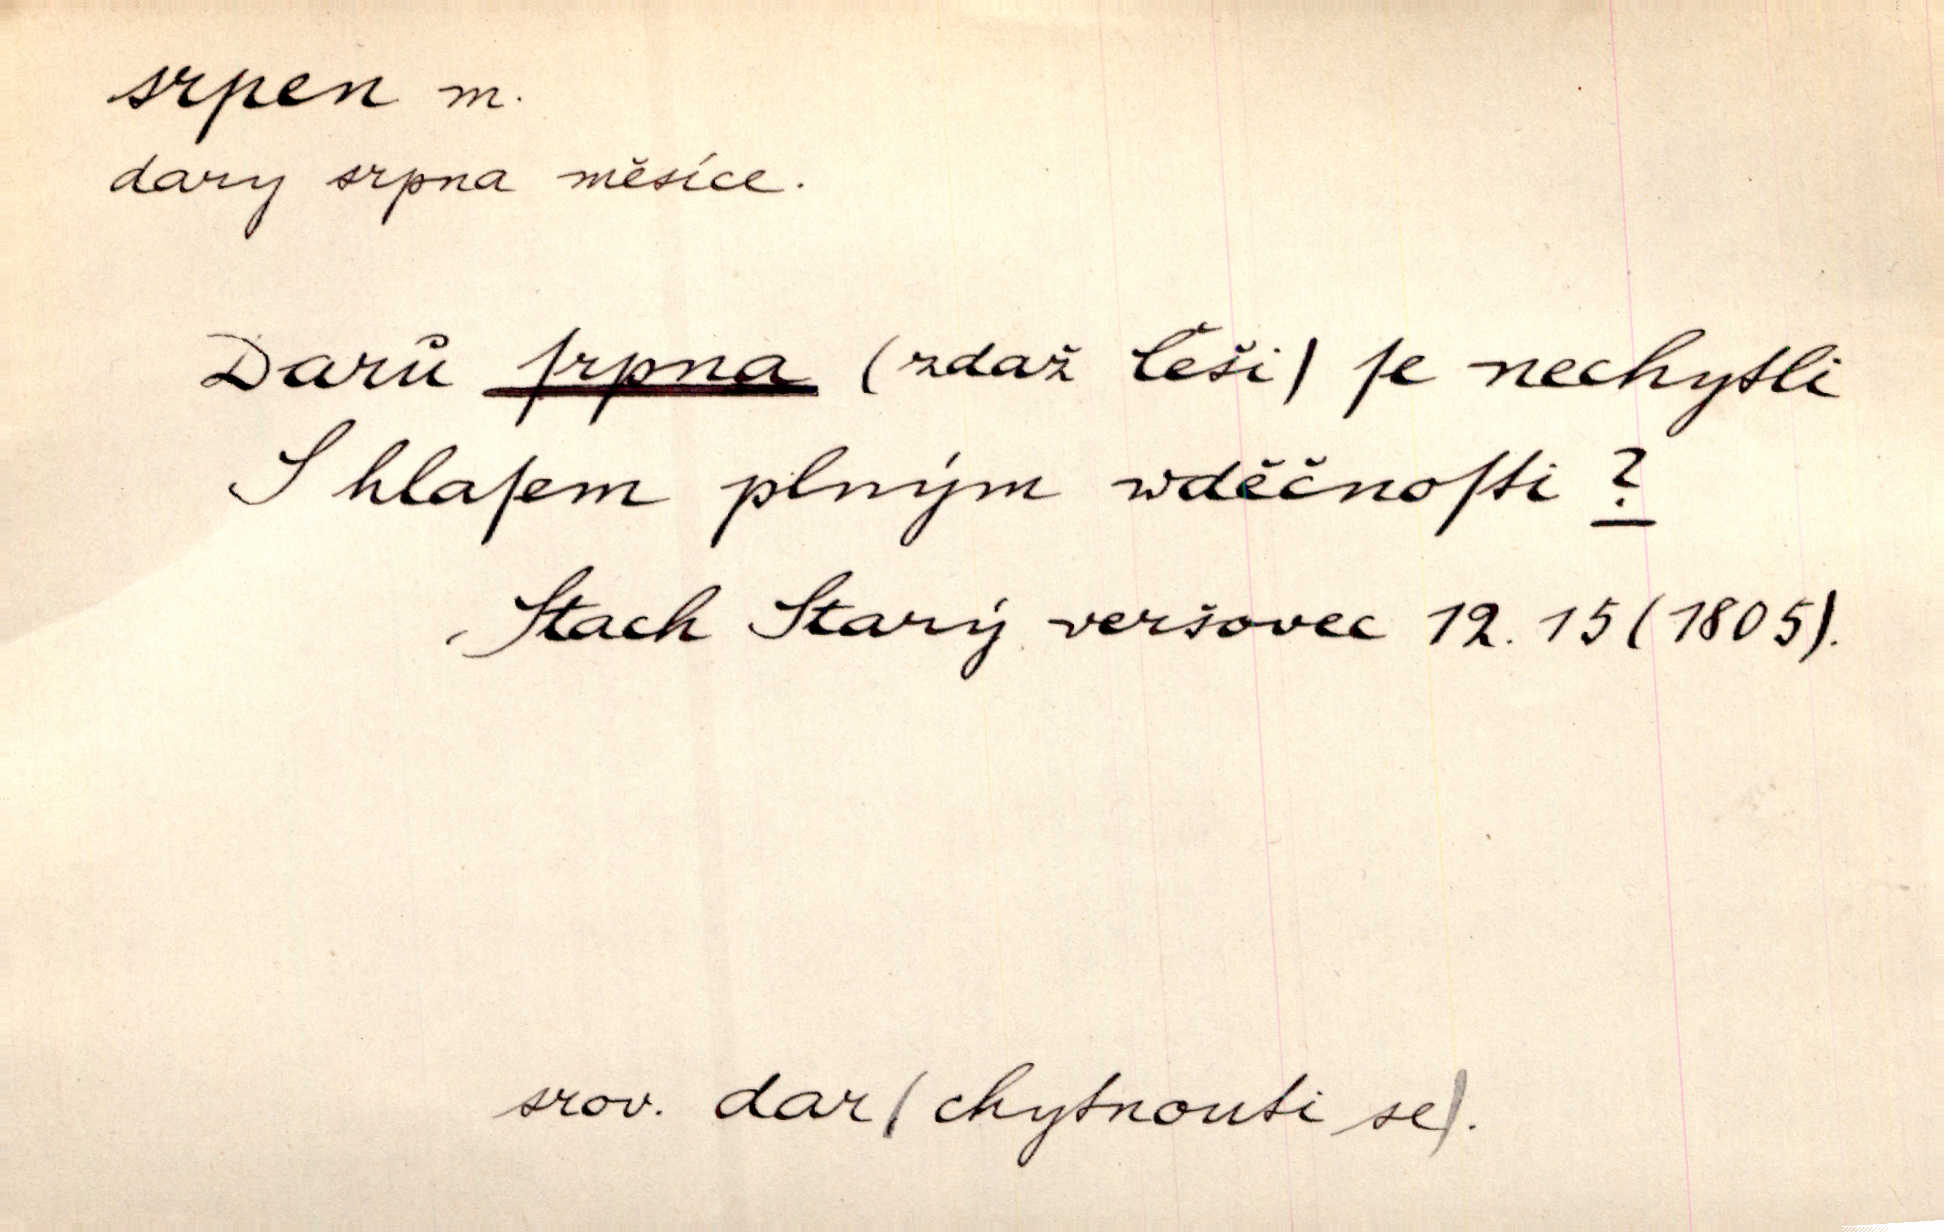 srpen m.
dary srpna měsíce.
Darů ſrpna (zdaž Češi) ſe nechytli
S hlaſem plným wděčnoſti ?
Stach Starý veršovec 12. 15 (1805).
srov. dar (chytnouti se).